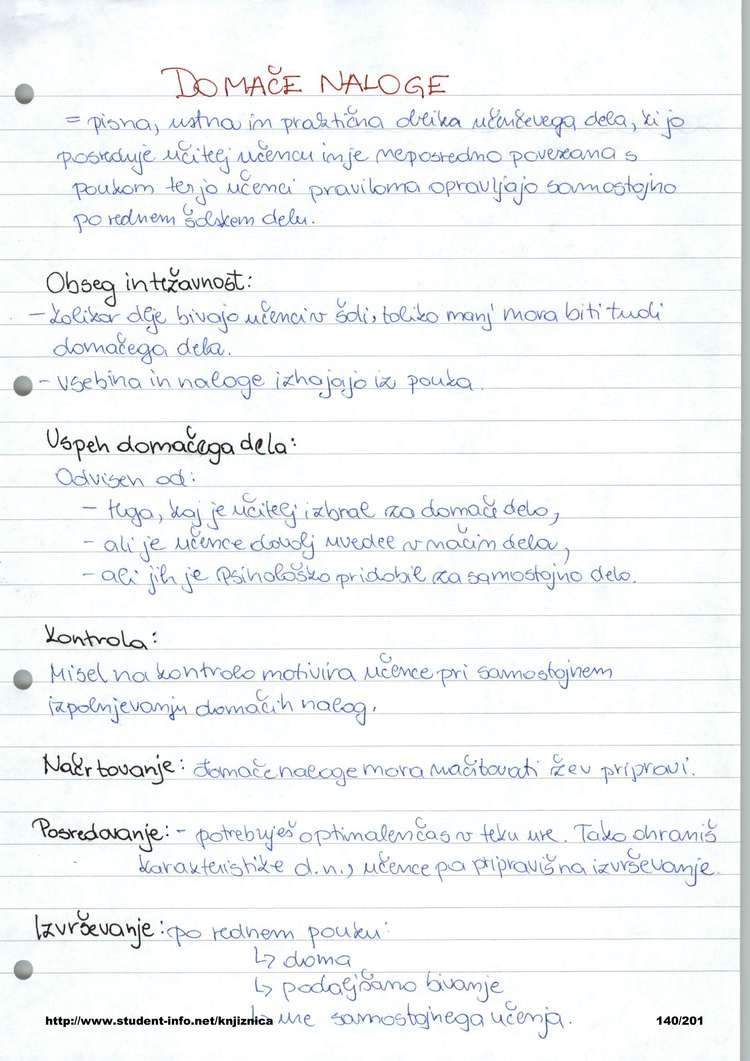 DOMAČE NALOGE
= pisna, ustna in praktična oblika učenčevega dela, ki jo
posreduje učitelj učencu in je neposredno povezana s
poukom ter jo učenci praviloma opravljajo samostojno
po rednem šolskem delu.
Obseg in težavnost:
- kolikor dlje bivajo učenci v šoli, toliko manj mora biti tudi
domačega dela.
- vsebina in naloge izhajajo iz pouka.
Uspeh domačega dela:
Odvisen od:
- tega, kaj je učitelj izbral za domače delo,
- ali je učence dovolj uvedel v način dela,
- ali jih je psihološko pridobil za samostojno delo.
Kontrola:
Misel na kontrolo motivira učence pri samostojnem
izpolnjevanju domačih nalog.
Načrtovanje: domače naloge mora načrtovati že v pripravi.
Posredovanje: - potrebuješ optimalen čas v teku ure. Tako ohraniš
karakteristike d.n., učence pa pripraviš na izvrševanje.
Izvrševanje: po rednem pouku:
↳ doma
↳ podaljšano bivanje
↳ ure samostojnega učenja.
http://www.student-info.net/knjiznica 140/201